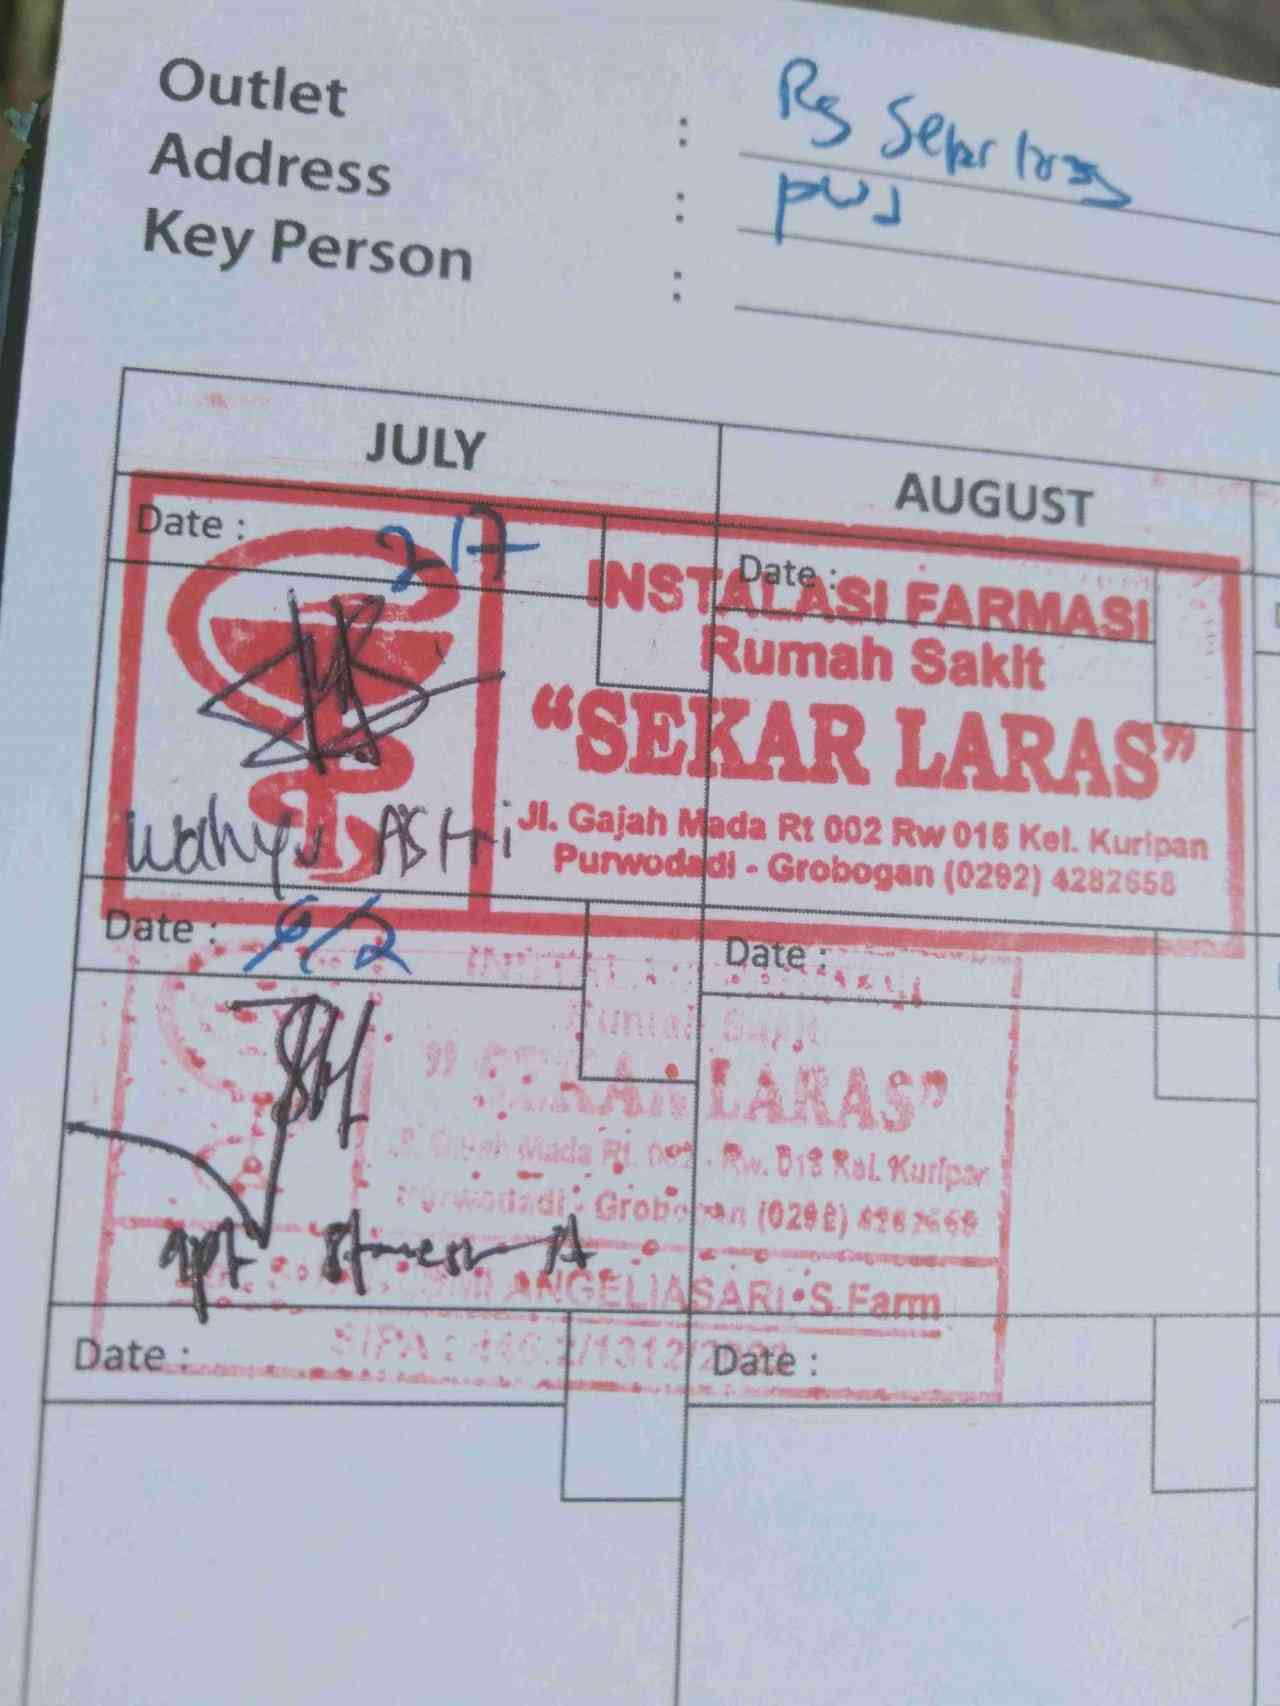 Outlet : Rs Sekar laras
Address : pwd
Key Person :
JULY
AUGUST
Date : 2/7
Date :
INSTALASI FARMASI
Rumah Sakit
"SEKAR LARAS"
Jl. Gajah Mada Rt 002 Rw 015 Kel. Kuripan
Purwodadi - Grobogan (0292) 4282658
Wahyu Astri
Date :
Date :
Sakit
LARAS"
Gajah Mada Rt. 002 - Rw. 015 Kel. Kuripan
Purwodadi - Grobogan (0292)
apt
A
ANGELIASARI S.Farm
SIPA : 446.2/1312/
Date :
Date :